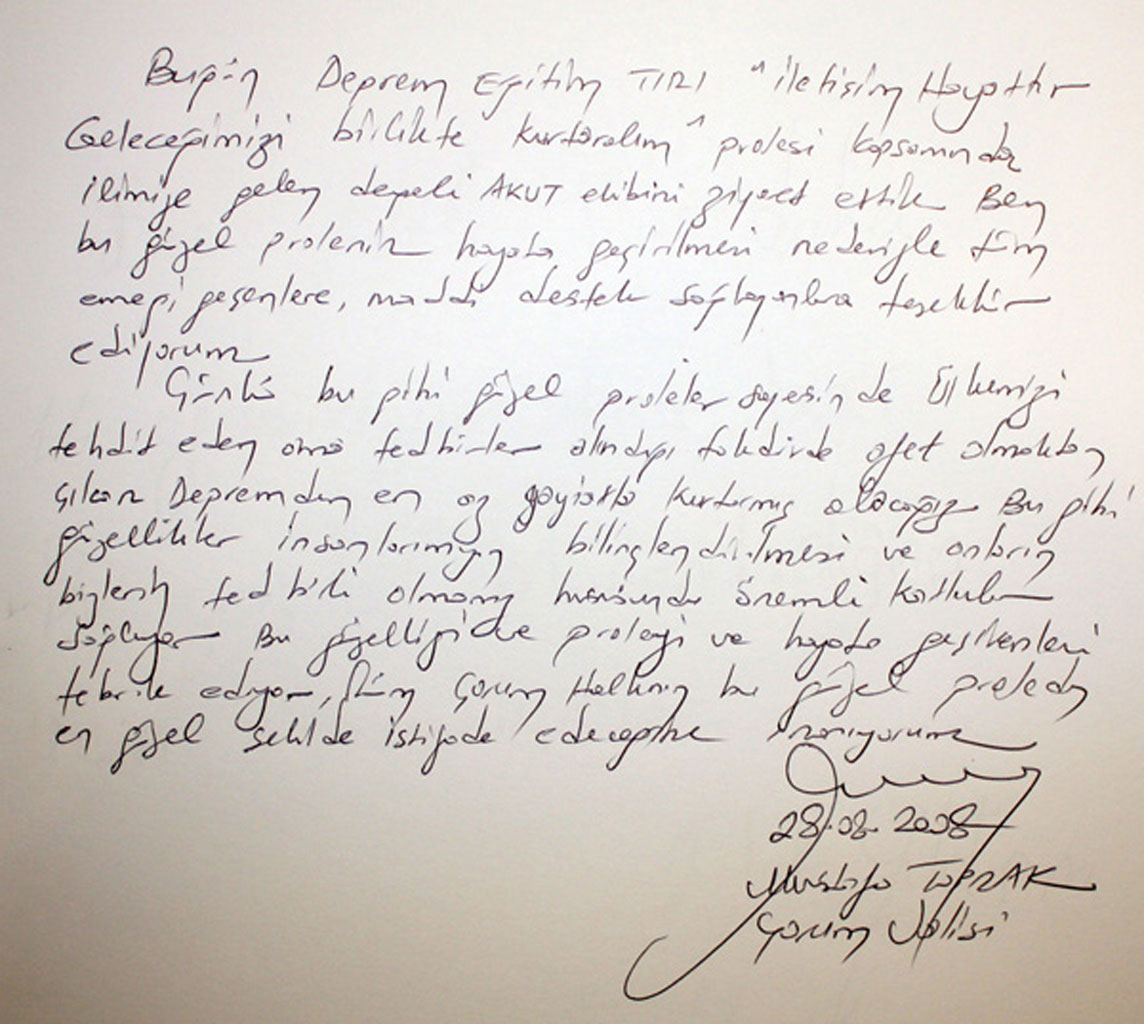 Bugün Deprem Eğitim TIRI "İletişim Hayattır
Geleceğimizi birlikte kurtaralım" projesi kapsamında
ilimize gelen değerli AKUT ekibini ziyaret ettik Ben
bu güzel projenin hayata geçirilmesi nedeniyle tüm
emeği geçenlere, maddi destek sağlayanlara teşekkür
ediyorum
Çünkü bu gibi güzel projeler sayesinde Ülkemizi
tehdit eden ama tedbirler alındığı takdirde afet olmaktan
çıkan Depremden en az zayiatla kurtarmış olacağız Bu gibi
güzellikler insanlarımızın bilinçlendirilmesi ve onların
bizlerin tedbirli olmamız hususunda önemli katkılar
sağlıyor Bu güzelliği ve projeyi ve hayata geçirenleri
tebrik ediyor, tüm Çorum Halkının bu güzel projeden
en güzel şekilde istifade edeceğine inanıyorum
28.08.2008
Mustafa TOPRAK
Çorum Valisi